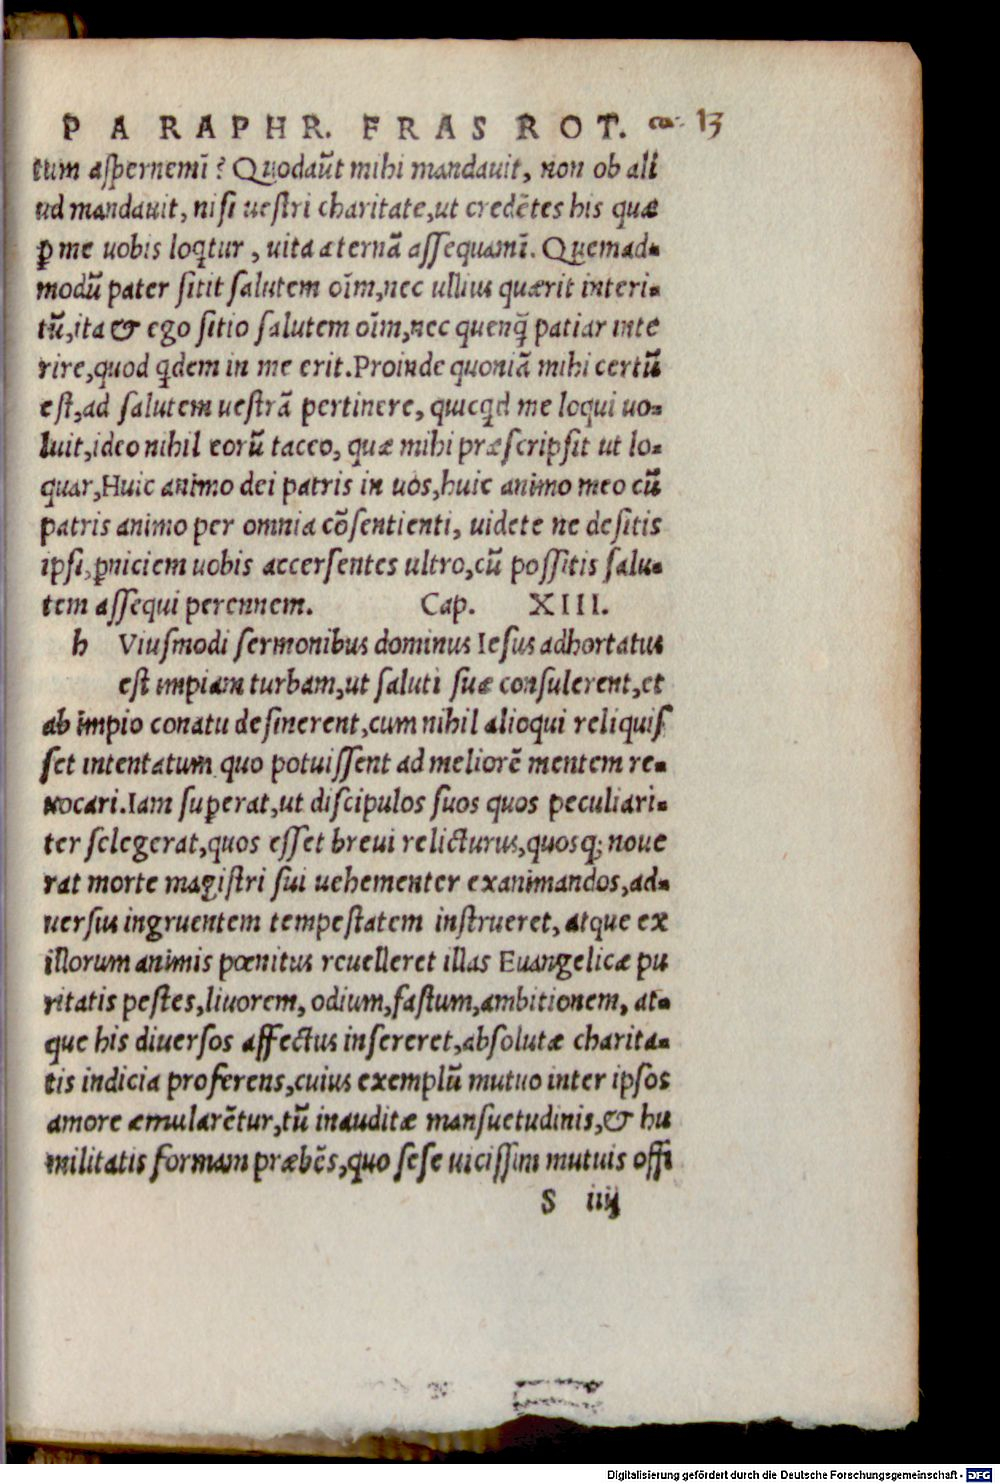 PARAPHR. ERAS ROT. ca. 13
tum aspernemī? Quodaūt mihi mandauit, non ob ali
ud mandauit, nisi uestri charitate,ut credētes his quæ
ꝑ me uobis loq̃tur, uita æternā assequamī. Quemad-
modū pater sitit salutem oīm,nec ullius quærit interi-
tū,ita & ego sitio salutem oīm,nec quenq̃ patiar inte
rire,quod q̃dem in me erit.Proinde quoniā mihi certū
est,ad salutem uestrā pertinere, quicq̃d me loqui uo-
luit,ideo nihil eorū taceo, quæ mihi præscripsit ut lo-
quar,Huic animo dei patris in uos,huic animo meo cū
patris animo per omnia cōsentienti, uidete ne desitis
ipsi,ꝑniciem uobis accersentes ultro,cū possitis salu-
tem assequi perennem. Cap. XIII.
h Viusmodi sermonibus dominus Iesus adhortatus
est impiam turbam,ut saluti suæ consulerent,et
ab impio conatu desinerent,cum nihil alioqui reliquis
set intentatum quo potuissent ad meliorē mentem re-
uocari.Iam superat,ut discipulos suos quos peculiari-
ter selegerat,quos esset breui relicturus,quosq; noue
rat morte magistri sui uehementer exanimandos,ad-
uersus ingruentem tempestatem instrueret, atque ex
illorum animis pœnitus reuelleret illas Euangelicæ pu
ritatis pestes,liuorem, odium,fastum,ambitionem, at-
que his diuersos affectus insereret,absolutæ charita-
tis indicia proferens,cuius exemplū mutuo inter ipsos
amore æmularētur,tū inauditæ mansuetudinis,& hu
militatis formam præbēs,quo sese uicissim mutuis offi
S iiij
Digitalisierung gefördert durch die Deutsche Forschungsgemeinschaft - DFG